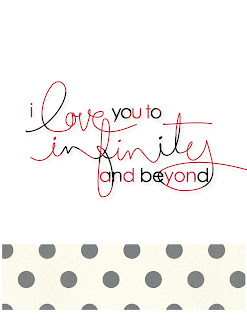 i love you to
infinity
and beyond